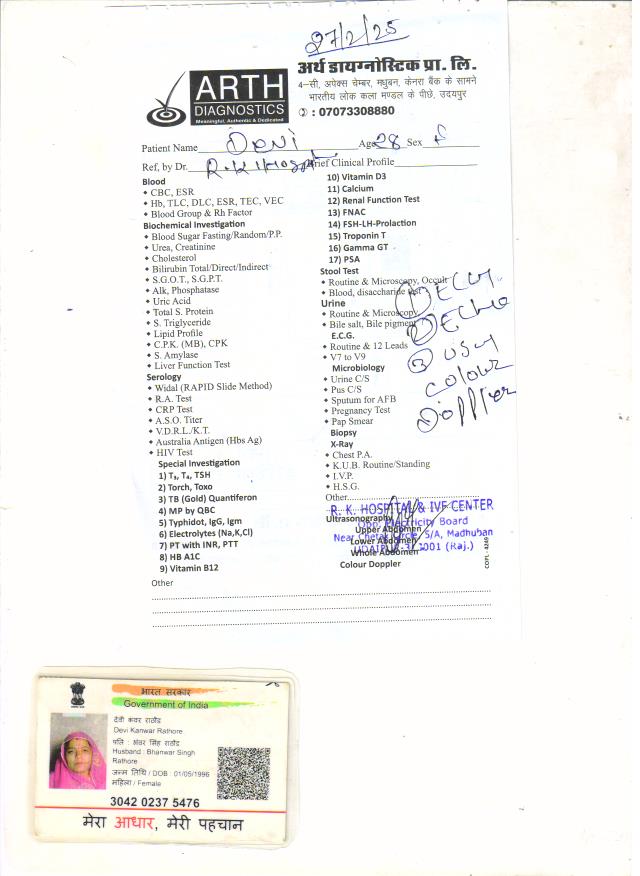 27/2/25
अर्थ डायग्नोस्टिक प्रा. लि.
4-सी, अपेक्स चेम्बर, मधुबन, केनरा बैंक के सामने
भारतीय लोक कला मण्डल के पीछे, उदयपुर
: 07073308880
ARTH
DIAGNOSTICS
Meaningful, Authentic & Dedicated
Patient Name Devi Age 28 Sex F
Ref, by Dr. R.K Hospital Brief Clinical Profile
Blood
CBC, ESR
Hb, TLC, DLC, ESR, TEC, VEC
Blood Group & Rh Factor
Biochemical Investigation
Blood Sugar Fasting/Random/P.P.
Urea, Creatinine
Cholesterol
Bilirubin Total/Direct/Indirect
S.G.O.T., S.G.P.T.
Alk, Phosphatase
Uric Acid
Total S. Protein
S. Triglyceride
Lipid Profile
C.P.K. (MB), CPK
S. Amylase
Liver Function Test
Serology
Widal (RAPID Slide Method)
R.A. Test
CRP Test
A.S.O. Titer
V.D.R.L./K.T.
Australia Antigen (Hbs Ag)
HIV Test
Special Investigation
1) T₃, T₄, TSH
2) Torch, Toxo
3) TB (Gold) Quantiferon
4) MP by QBC
5) Typhidot, IgG, Igm
6) Electrolytes (Na,K,Cl)
7) PT with INR, PTT
8) HB A1C
9) Vitamin B12
Other
10) Vitamin D3
11) Calcium
12) Renal Function Test
13) FNAC
14) FSH-LH-Prolaction
15) Troponin T
16) Gamma GT
17) PSA
Stool Test
Routine & Microscopy, Occult
Blood, disaccharide test
Urine
Routine & Microscopy
Bile salt, Bile pigment
E.C.G.
Routine & 12 Leads
V7 to V9
Microbiology
Urine C/S
Pus C/S
Sputum for AFB
Pregnancy Test
Pap Smear
Biopsy
X-Ray
Chest P.A.
K.U.B. Routine/Standing
I.V.P.
H.S.G.
Other
Ultrasonography
Upper Abdomen
Lower Abdomen
Whole Abdomen
Colour Doppler
① ECG
② Echo
③ USG
Colour
Doppler
R. K. HOSPITAL & IVF CENTER
Opp. Electricity Board
Near Chetak Circle, 5/A, Madhuban
UDAIPUR-313001 (Raj.)
COPL - 4249
भारत सरकार
Government of India
देवी कंवर राठौड
Devi Kanwar Rathore
पति : भंवर सिंह राठौड
Husband : Bhanwar Singh
Rathore
जन्म तिथि / DOB : 01/05/1996
महिला / Female
3042 0237 5476
मेरा आधार, मेरी पहचान